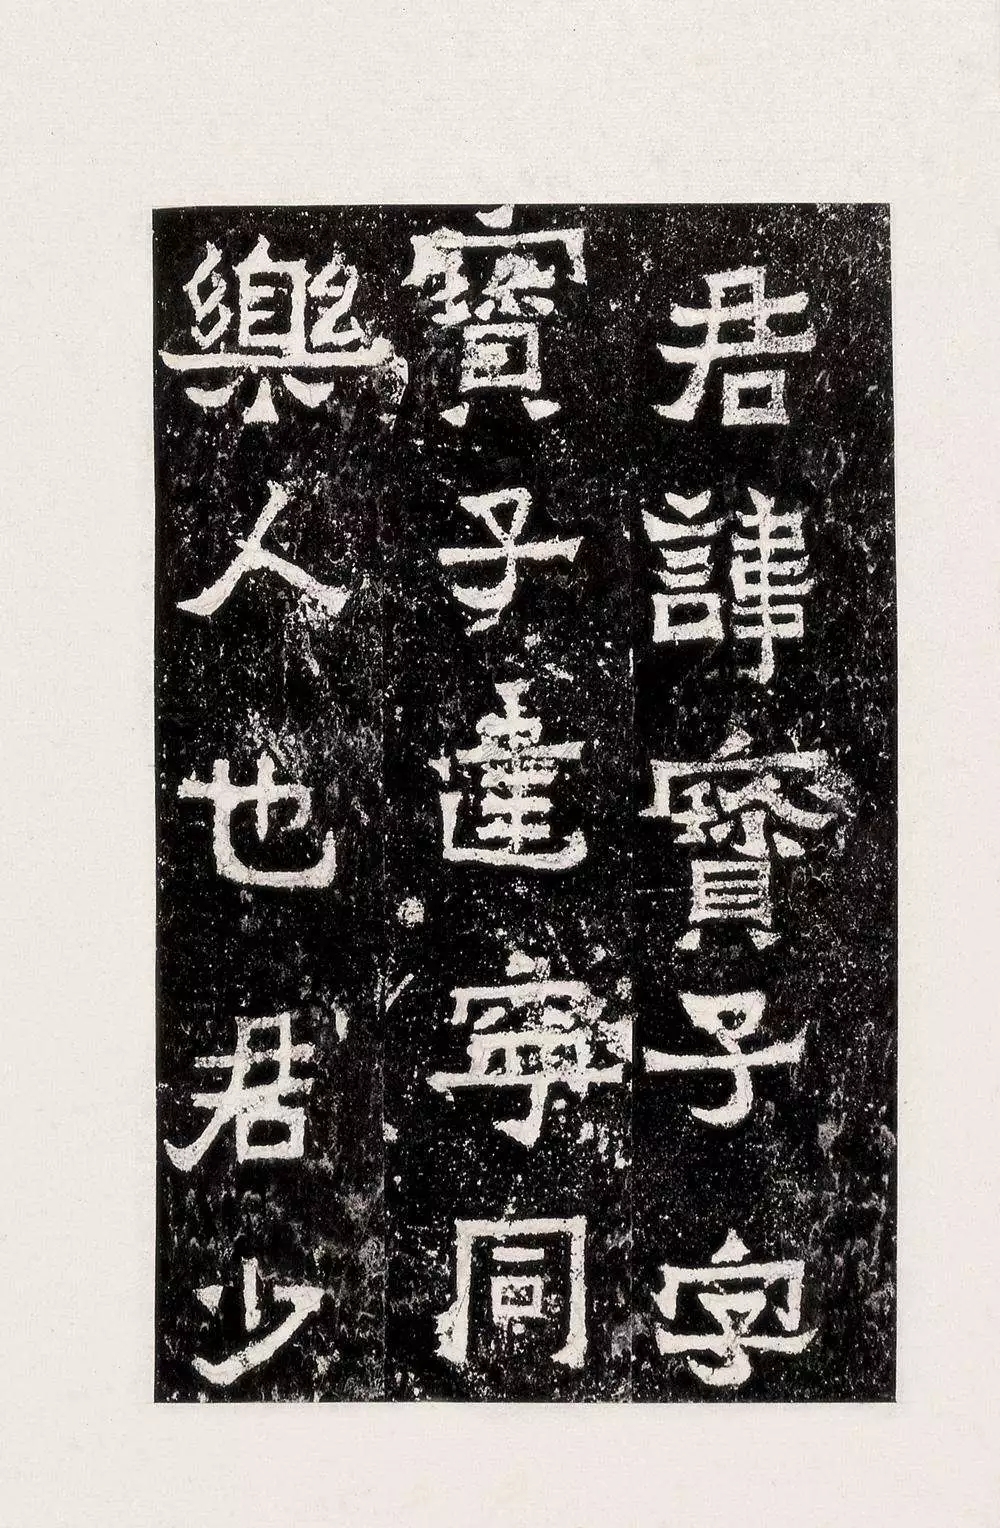 君諱寶子字
寶子達寧同
樂人也君少